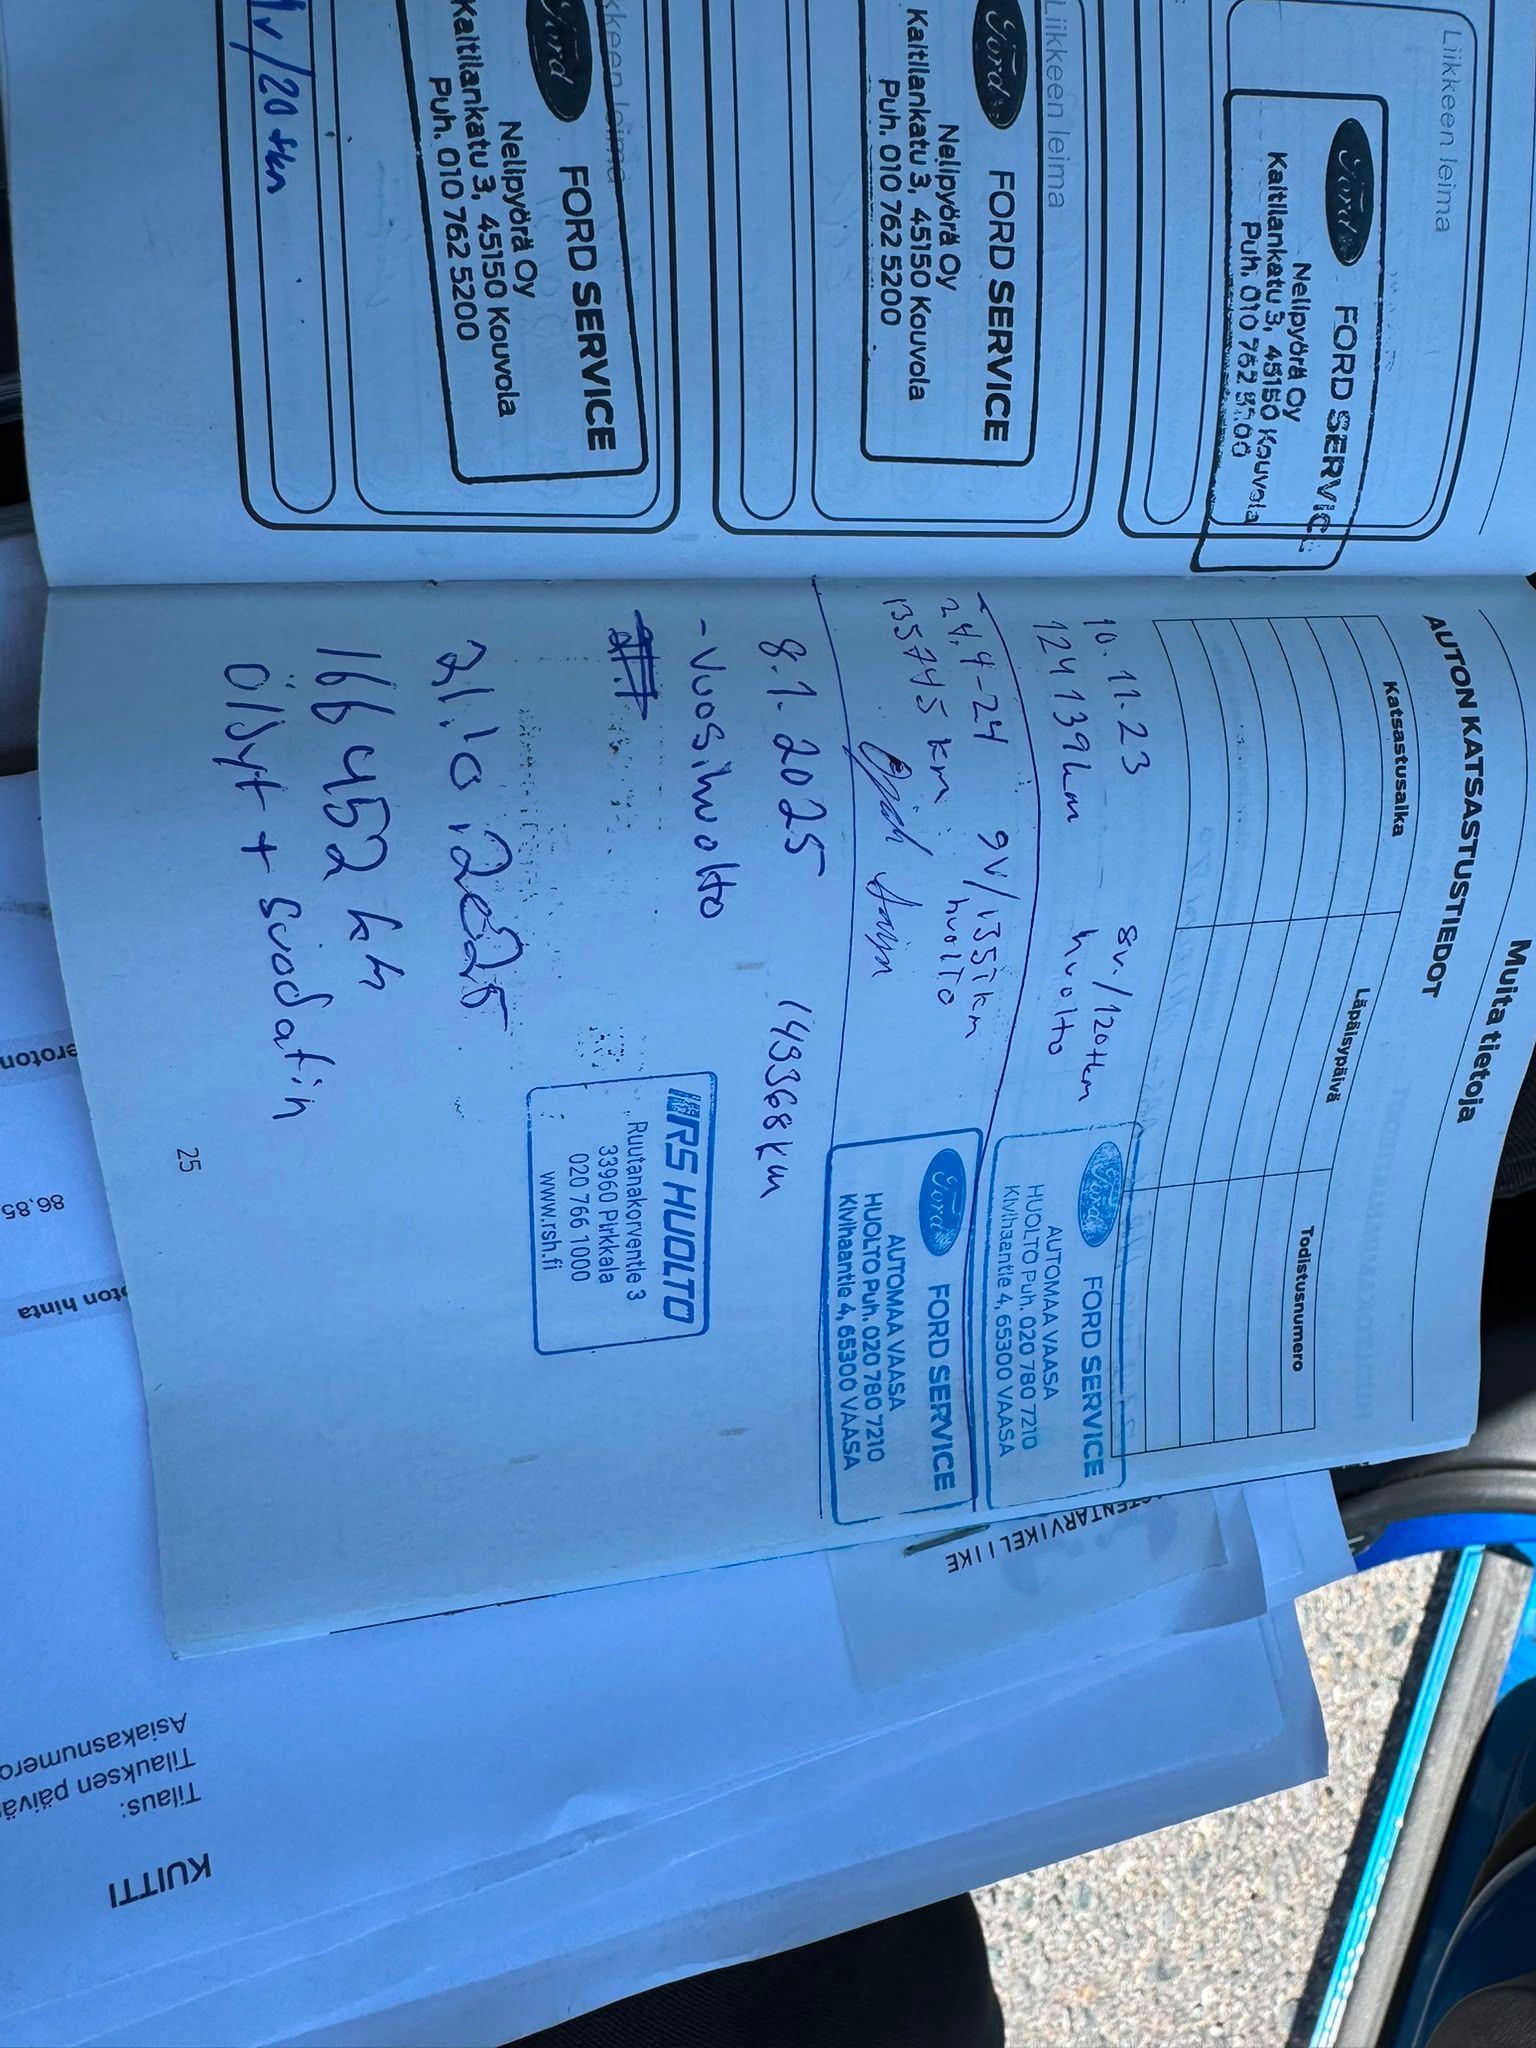 Liikkeen leima
FORD SERVICE
Nelipyörä Oy
Kaltilankatu 3, 45150 Kouvola
Puh. 010 762 5200
Liikkeen leima
Ford
FORD SERVICE
Nelipyörä Oy
Kaltilankatu 3, 45150 Kouvola
Puh. 010 762 5200
kkeen leima
Ford
FORD SERVICE
Nelipyörä Oy
Kaltilankatu 3, 45150 Kouvola
Puh. 010 762 5200
v/20 tkm
Muita tietoja
AUTON KATSASTUSTIEDOT
Katsastusaika
Läpäisypäivä
Todistusnumero
10.11.23
8v./120tkm
124139km
huolto
Ford
FORD SERVICE
AUTOMAA VAASA
HUOLTO Puh. 020 780 7210
Kivihaantie 4, 65300 VAASA
24.4-24
9V/135Tkm
135745 km
huolto
Ford
FORD SERVICE
AUTOMAA VAASA
HUOLTO Puh. 020 780 7210
Kivihaantie 4, 65300 VAASA
8.1.2025
149368km
- Vuosihuolto
RS HUOLTO
Ruutanakorventie 3
33960 Pirkkala
020 766 1000
www.rsh.fi
21.10.2025
166452 km
Öljyt + suodatin
25
TENTARVIKELIIKE
eroton
86,85
oton hinta
KUITTI
Tilaus:
Tilauksen päivä
Asiakasnumero